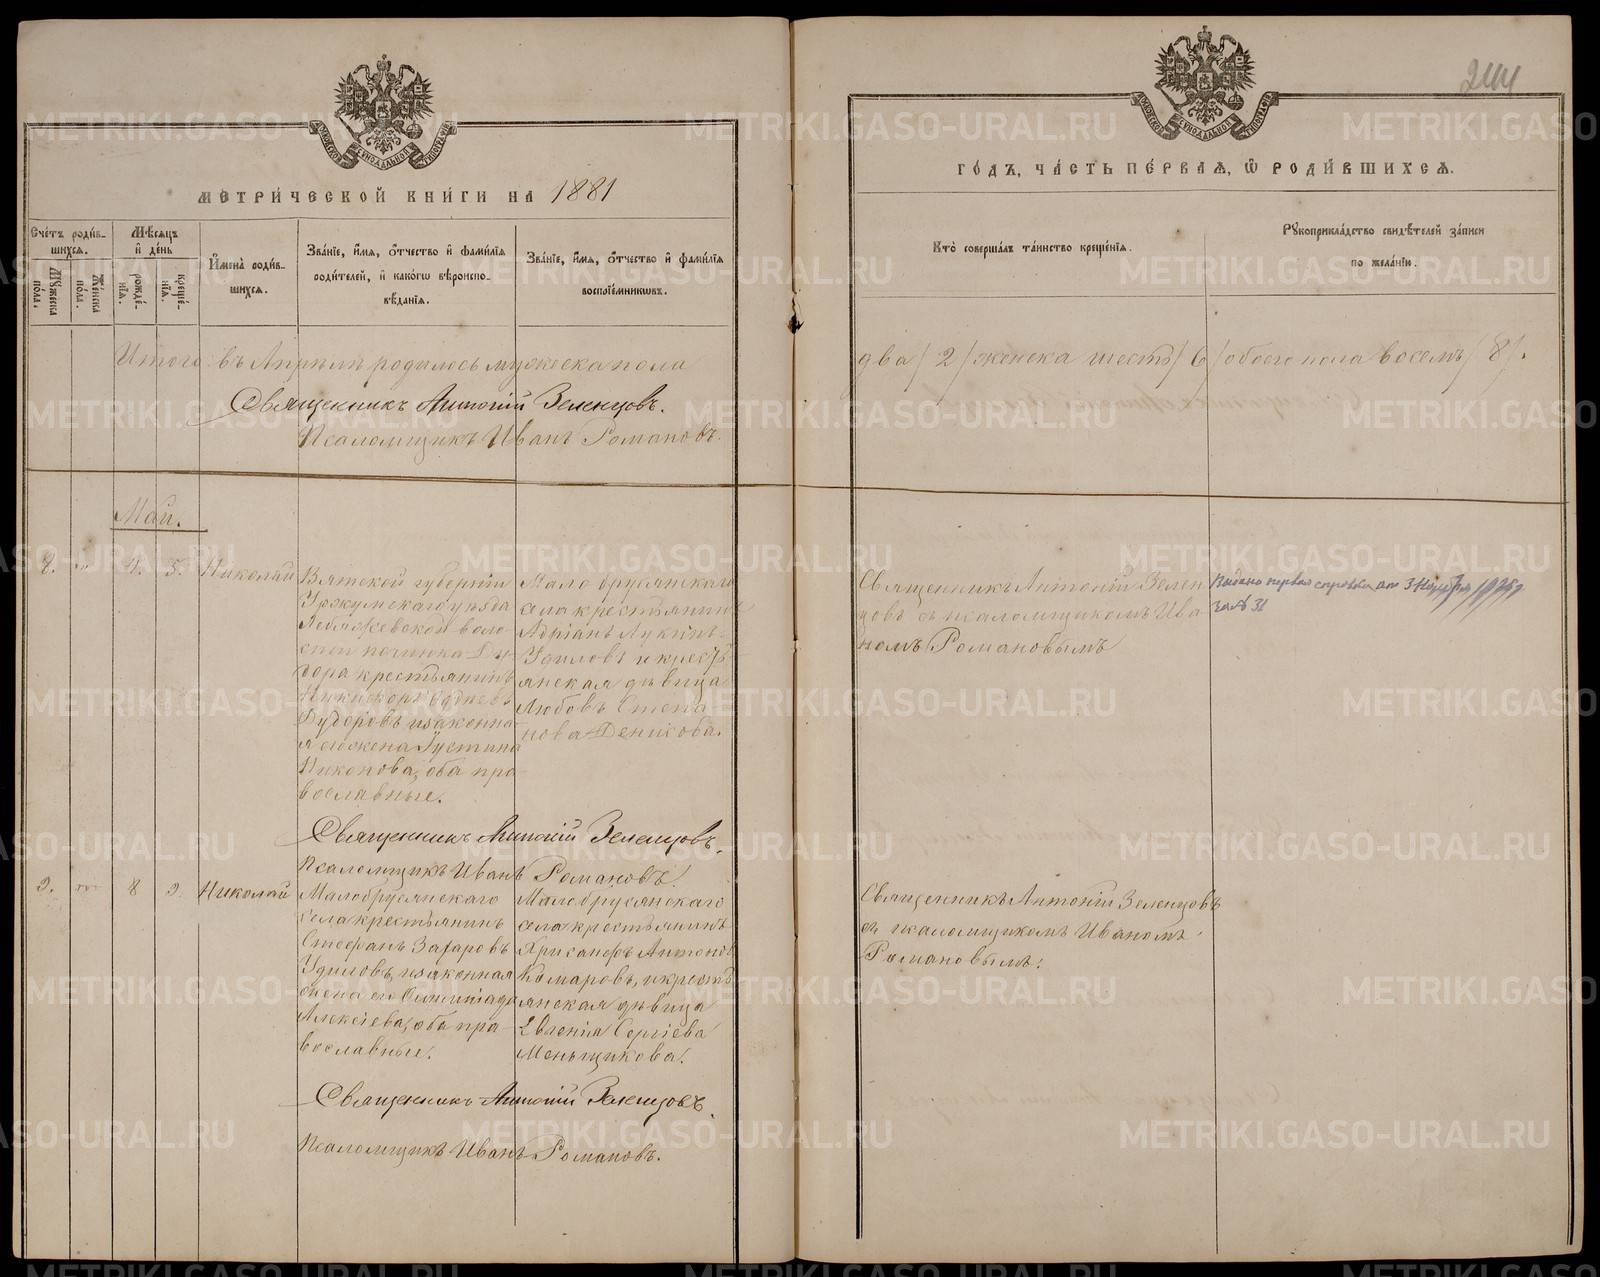 244
МЕТРИ́ЧЕСКОЙ КНИ́ГИ НА 1881
ГО́ДЪ, ЧА́СТЬ ПЕ́РВАѦ, Ѡ҆ РОДИ́ВШИХСѦ.
Сче́тъ роди́вшихсѧ.
Мѹ́жеска по́ла.
Же́нска по́ла.
Мѣ́сѧцъ и҆ де́нь
рожде́нїѧ.
креще́нїѧ.
И҆мена̀ роди́в-
шихсѧ.
Зва́нїе, и҆́мѧ, ѻ҆́тчество и҆ фами́лїѧ
роди́телей, и҆ како́гѡ вѣроиспо-
вѣ́данїѧ.
Зва́нїе, и҆́мѧ, ѻ҆́тчество и҆ фами́лїѧ
воспрїе́мникѡвъ.
Кто̀ соверша́лъ та́инство креще́нїѧ.
Рѹкоприкла́дство свидѣ́телей за́писи
по жела́нїю.
Итого въ Апрѣлѣ родилось мужеска пола
два /2/ женска шесть /6/ обоего пола восемь /8/.
Священникъ Антоній Зеленцовъ.
Псаломщикъ Иванъ Романовъ.
Май.
8. 4. 5. Николай
Вятской губерніи
Уржумскаго уѣзда
Лебяжевской воло-
сти починка Ду-
дора крестьянинъ
Никифоръ
Дудоровъ и законна-
я его жена Іустина
Никонова, оба пра-
вославные.
Мало брусянскаго
села крестьянинъ
Адріанъ Лукинъ
Удиловъ и кресть-
янская дѣвица
Любовь Степа-
нова Денисова.
Священникъ Антоній Зелен
цовъ съ псаломщикомъ Ива
номъ Романовымъ
Выдано первая справка от 3 Ноября
за № 31
Священникъ Антоній Зеленцовъ.
Псаломщикъ Иванъ Романовъ.
9. 8 9. Николай
Малобрусянскаго
села крестьянинъ
Стефанъ Захаровъ
Удиловъ, и законная
жена его Олимпіада
Алексіева, оба пра-
вославные.
Малобрусянскаго
села крестьянинъ
Хрисанфъ Антонов
Комаровъ, и кресть
янская дѣвица
Евгенія Сергіева
Меньщикова.
Священникъ Антоній Зеленцовъ
съ псаломщикомъ Иваномъ
Романовымъ.
Священникъ Антоній Зеленцовъ.
Псаломщикъ Иванъ Романовъ.
METRIKI.GASO-URAL.RU